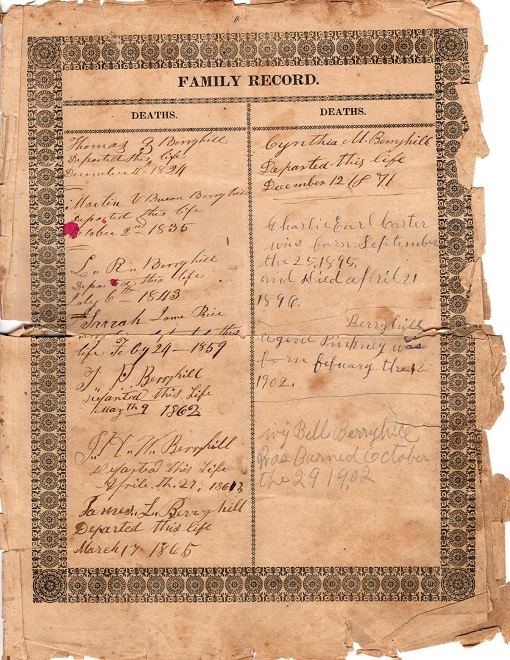 FAMILY RECORD.
DEATHS.
Thomas Berryhill
Departed this life
December 4th 1824
Martin V Buren Berryhill
departed this life
October 2nd 1835
L. R. Berryhill
Departed this life
July 6th 1843
Sarrah Rice
this
life Feby 24 - 1859
T. P. Berryhill
departed this Life
May th 9 1862
T. H. W. Berryhill
departed this Life
Aprile th. 27, 1863
James. L. Berryhill
Departed this life
March 17 1865
DEATHS.
Cynthia M. Berryhill
Departed this life
December 12 1871
Charlie Earl Carter
was born September
the 25, 1895,
and died april 21
1896.
Berryhill
Pinkney was
born febuary the 12
1902.
Bell Berryhill
Was Barned October
the 29 1902